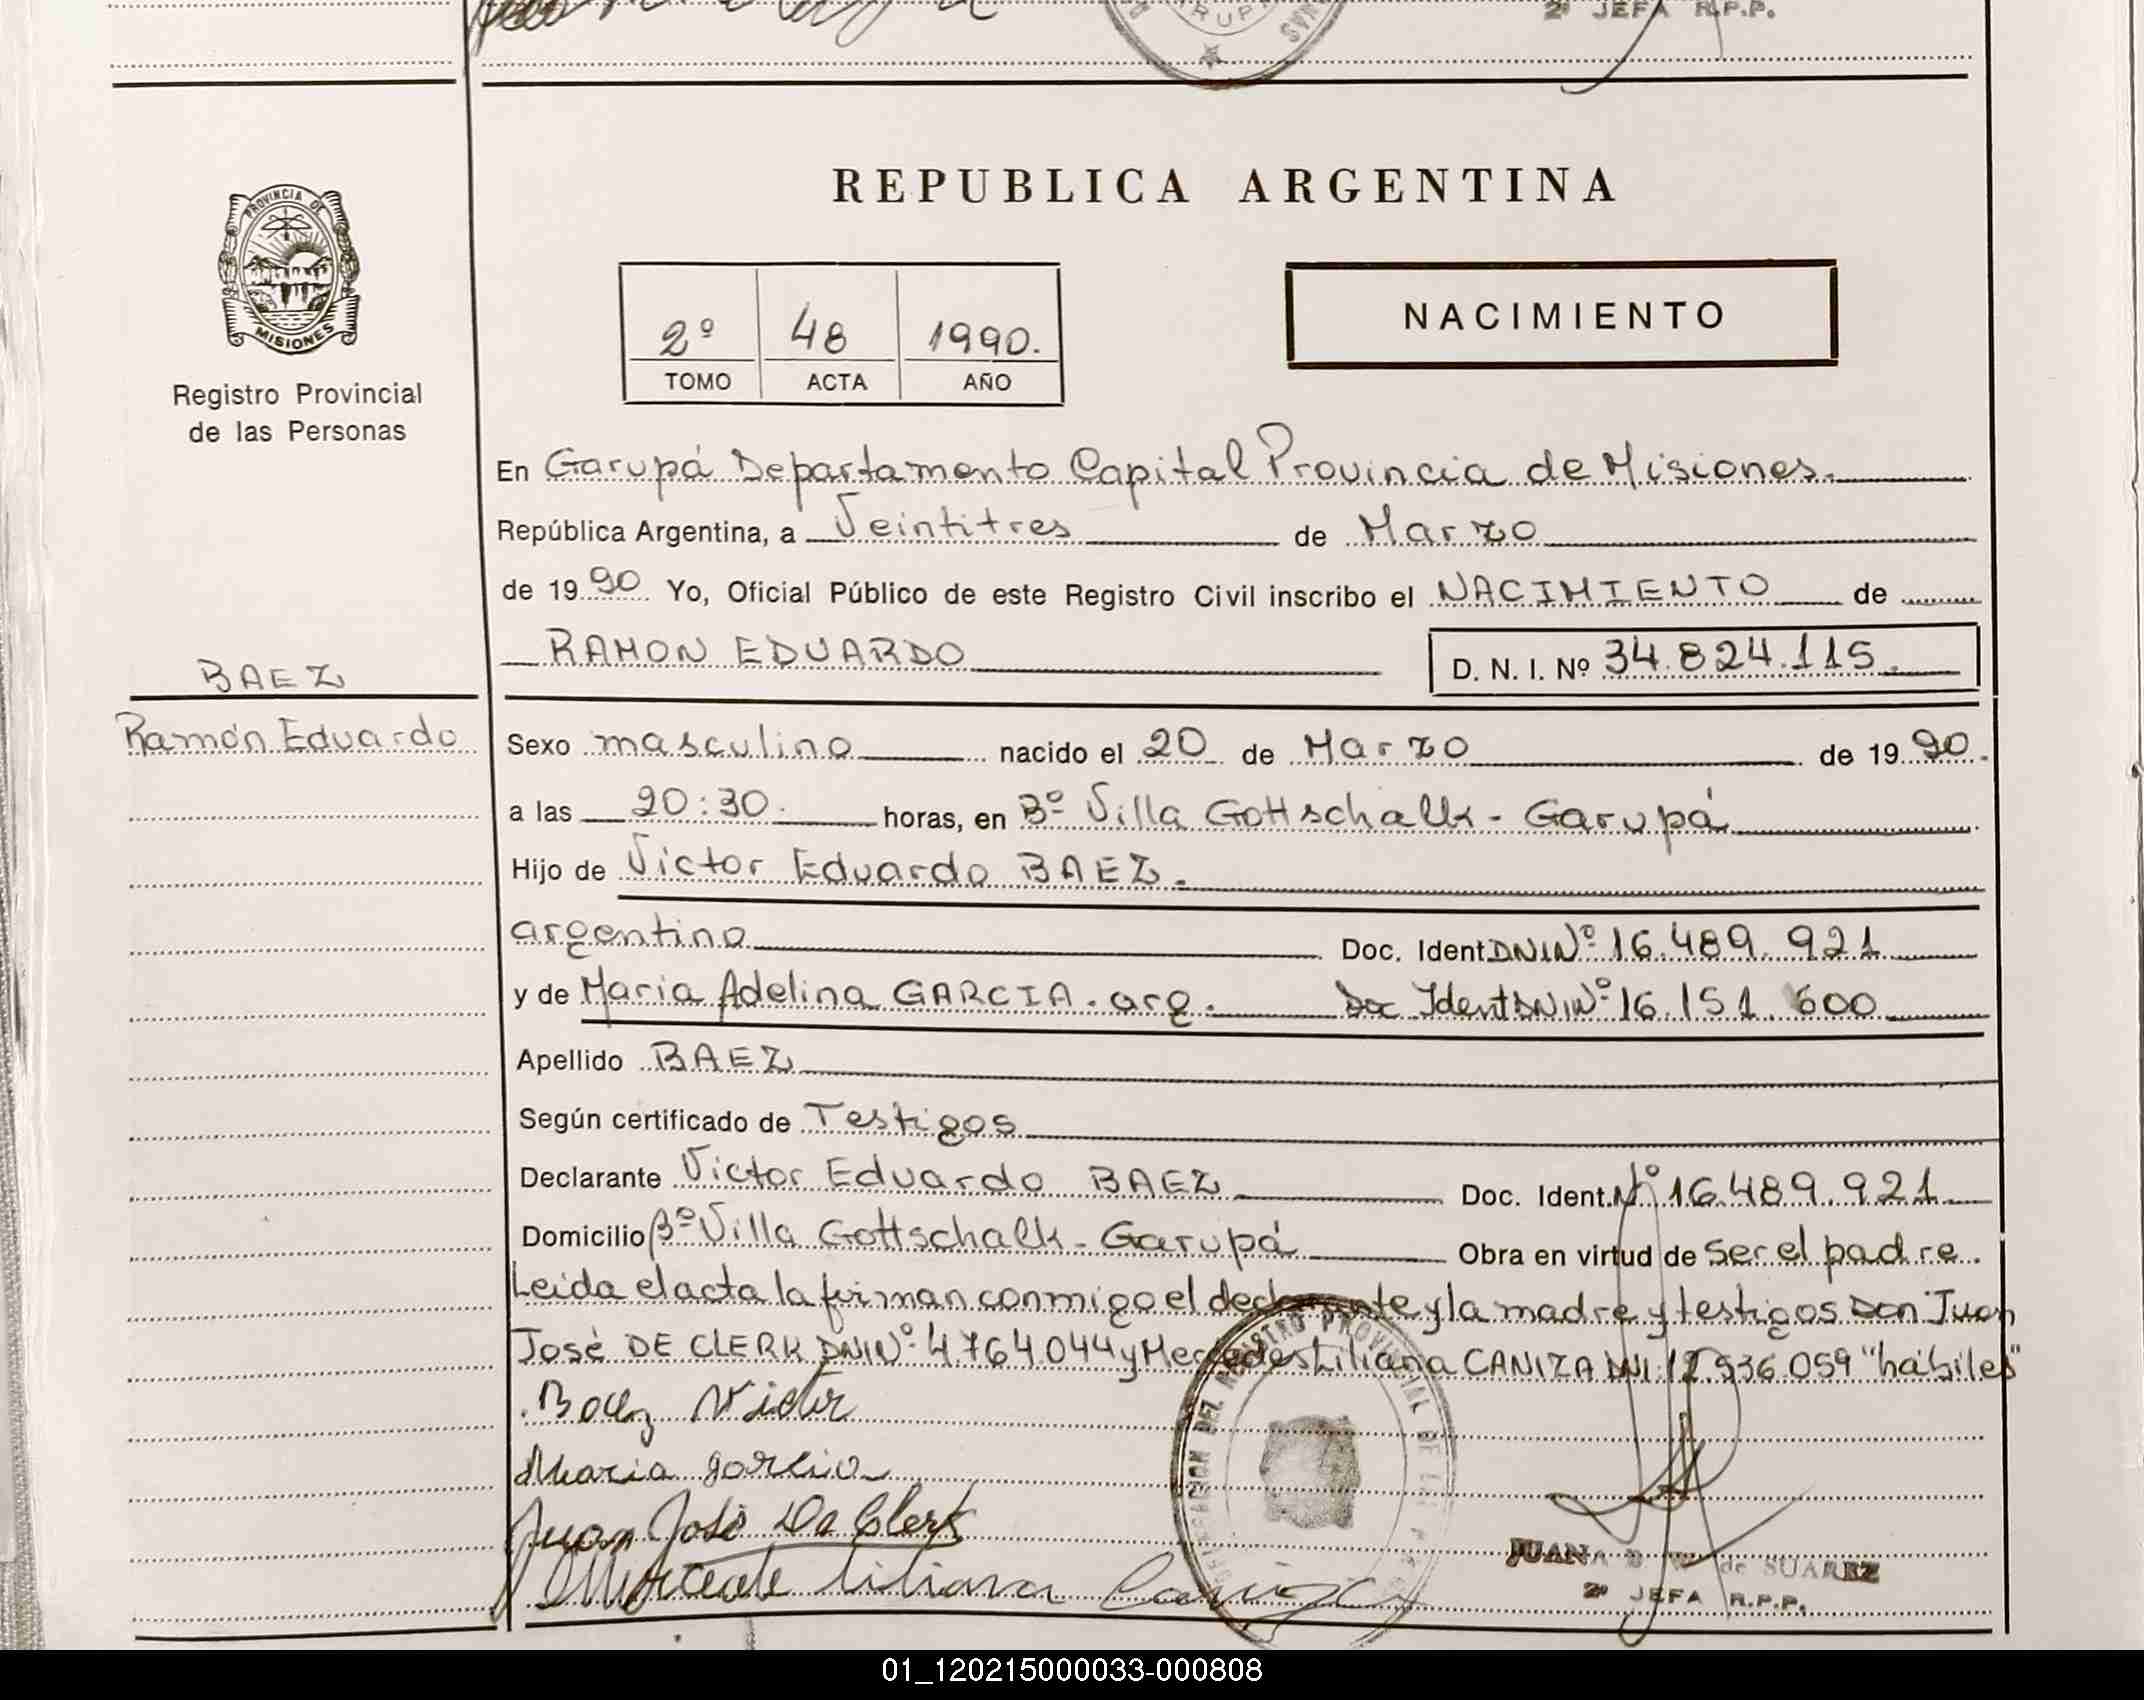 2º JEFA R.P.P.
PROVINCIA DE
MISIONES
Registro Provincial
de las Personas
REPUBLICA ARGENTINA
2º 48 1990.
TOMO ACTA AÑO
NACIMIENTO
En Garupá Departamento Capital Provincia de Misiones.
República Argentina, a Veintitres de Marzo
de 1990 Yo, Oficial Público de este Registro Civil inscribo el NACIMIENTO de
RAMON EDUARDO D. N. I. Nº 34.824.115.
BAEZ
Ramón Eduardo
Sexo masculino nacido el 20 de Marzo de 1990.
a las 20:30. horas, en Bº Villa Gottschalk - Garupá
Hijo de Victor Eduardo BAEZ.
argentino Doc. Ident DNI Nº 16.489.921
y de Maria Adelina GARCIA. arg. Doc Ident DNI Nº 16.151.600
Apellido BAEZ
Según certificado de Testigos
Declarante Victor Eduardo BAEZ Doc. Ident. Nº 16.489.921
Domicilio Bº Villa Gottschalk - Garupá Obra en virtud de ser el padre.
Leida el acta la firman conmigo el declarante y la madre y testigos Don Juan
José DE CLERK DNI Nº 4.764.044 y Mercedes Liliana CANIZA DNI: 12.536.059 "hábiles"
Baez Victor
Maria garcia
Juan José De Clerk
Mercede liliana Caniza
DEL REGISTRO PROVINCIAL DE LAS
JUANA de SUAREZ
2º JEFA R.P.P.
01_120215000033-000808